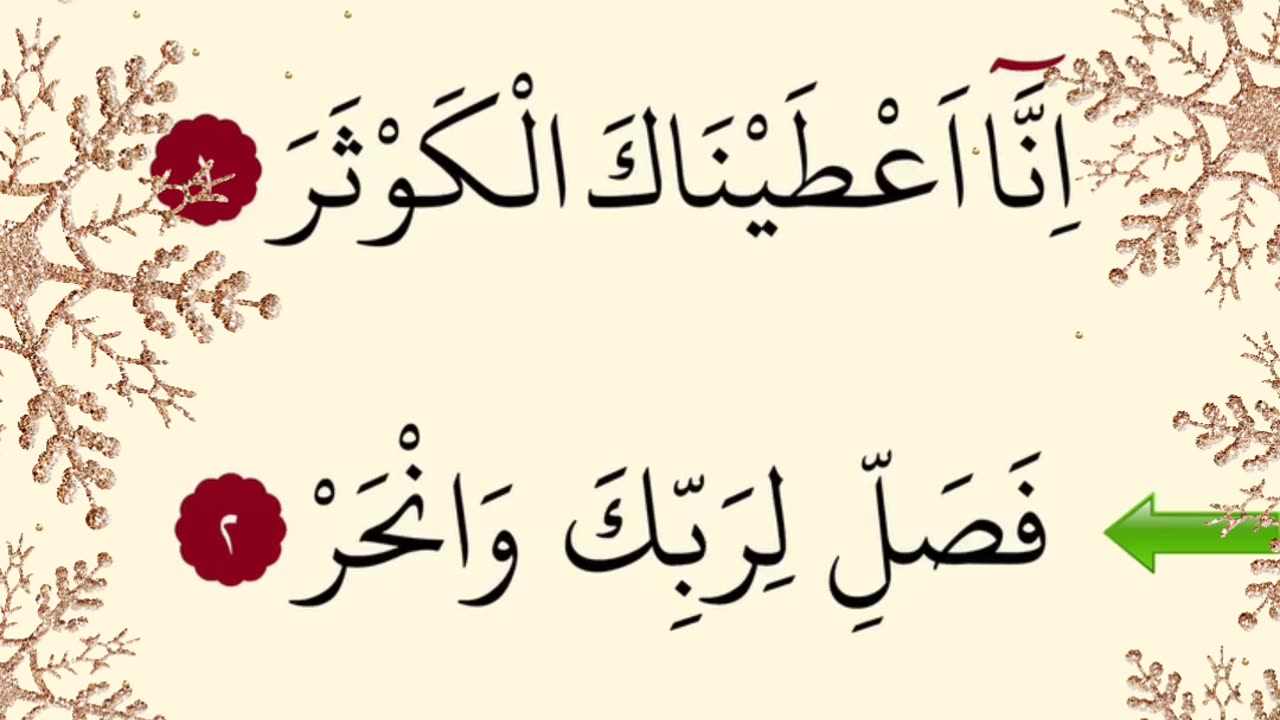 اِنَّاۤ اَعْطَيْنَاكَ الْكَوْثَرَ
فَصَلِّ لِرَبِّكَ وَانْحَرْ ٢